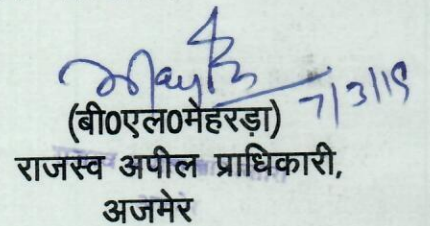 7/3/19
(बी0एल0मेहरड़ा)
राजस्व अपील प्राधिकारी,
अजमेर